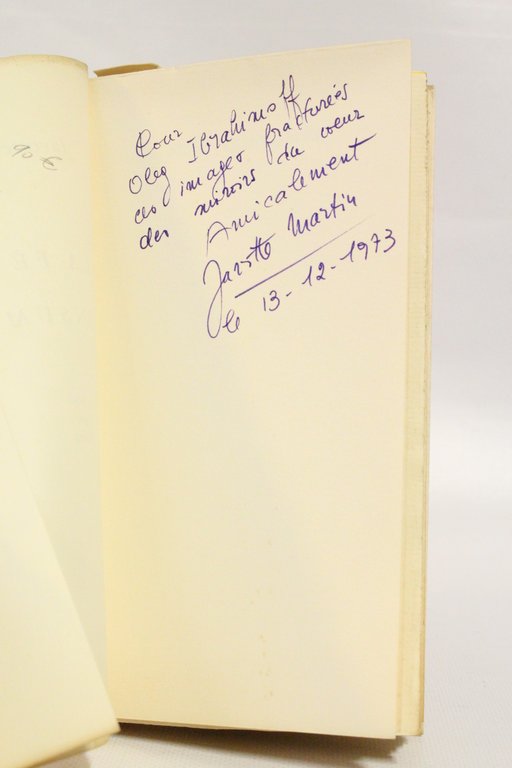 Pour
Oleg Ibrahimoff
ces images fracturées
des miroirs du coeur
Amicalement
Martin
le 13-12-1973